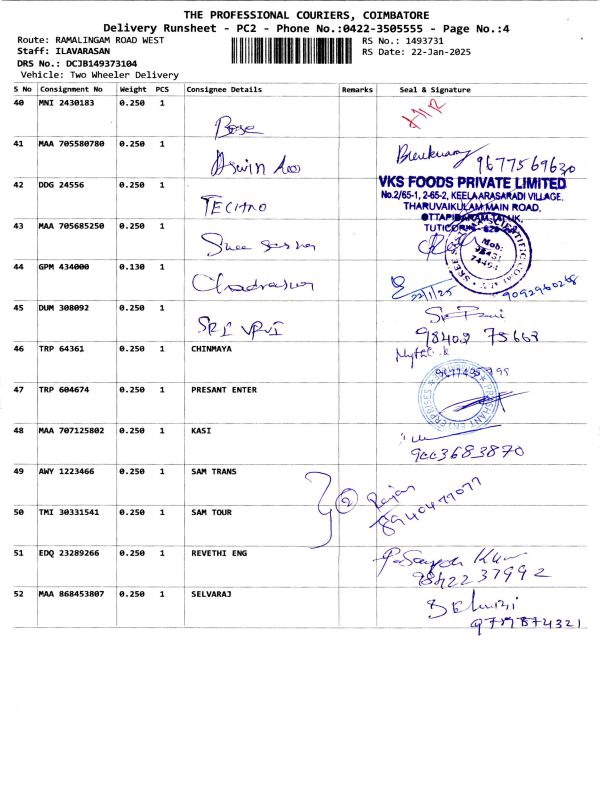 THE PROFESSIONAL COURIERS, COIMBATORE
Delivery Runsheet - PC2 - Phone No.:0422-3505555 - Page No.:4
Route: RAMALINGAM ROAD WEST
Staff: ILAVARASAN
DRS No.: DCJB149373104
Vehicle: Two Wheeler Delivery
RS No.: 1493731
RS Date: 22-Jan-2025
S No Consignment No Weight PCS Consignee Details Remarks Seal & Signature
40 MNI 2430183 0.250 1
Bose
41 MAA 705580780 0.250 1
Aswin 9677569630
42 DDG 24556 0.250 1
TECHNO
VKS FOODS PRIVATE LIMITED
No.2/65-1, 2-65-2, KEELA ARASARADI VILLAGE,
THARUVAIKULAM MAIN ROAD,
OTTAPIDARAM TALUK,
43 MAA 705685250 0.250 1
Sree
Mob:
44 GPM 434000 0.130 1
22/1/25 9092960268
45 DUM 308092 0.250 1
SRI
98402 75663
46 TRP 64361 0.250 1 CHINMAYA
47 TRP 604674 0.250 1 PRESANT ENTER
PRASHANT ENTERPRISES
48 MAA 707125802 0.250 1 KASI
9003683870
49 AWY 1223466 0.250 1 SAM TRANS
2 Rajan
8940477077
50 TMI 30331541 0.250 1 SAM TOUR
51 EDQ 23289266 0.250 1 REVETHI ENG
9842237992
52 MAA 868453807 0.250 1 SELVARAJ
9787874321